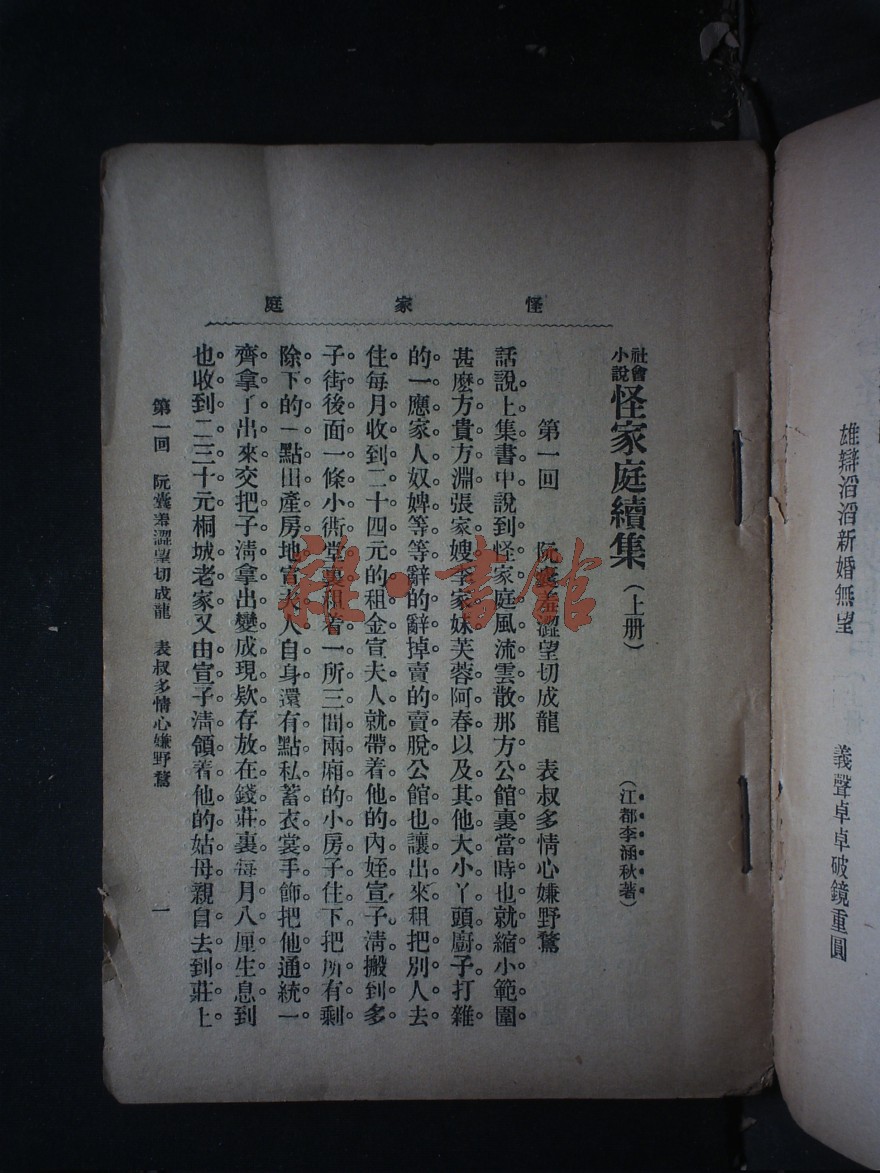 雄辯滔滔新婚無望　義聲卓卓破鏡重圓
怪家庭
社會小說怪家庭續集（上册）　（江都李涵秋著）
第一回　阮囊羞澀望切成龍　表叔多情心嫌野鶩
話說上集書中說到怪家庭風流雲散。那方公館裏當時也就縮小範圍。
甚麽方貴方淵張家嫂李家妹芙蓉阿春以及其他大小丫頭。廚子打雜
的一應家人奴婢等等。辭的辭掉。賣的賣脫。公館也讓出來租把別人去
住。每月收到二十四元的租金。宣夫人就帶着他的內姪宣子淸搬到多
子街後面一條小衖堂裏租着一所三間兩廂的小房子住下。把所有剩
除下的一點田產房地宣夫人自身還有點私蓄衣裳手飾。把他通統一
齊拿了出來。交把子淸拿出變成現欵存放在錢莊裏。每月八厘生息。到
也收到二三十元。桐城老家又由宣子淸領着他的姑母親自去到莊上
第一回　阮囊羞澀望切成龍　表叔多情心嫌野鶩　一
雜·書館